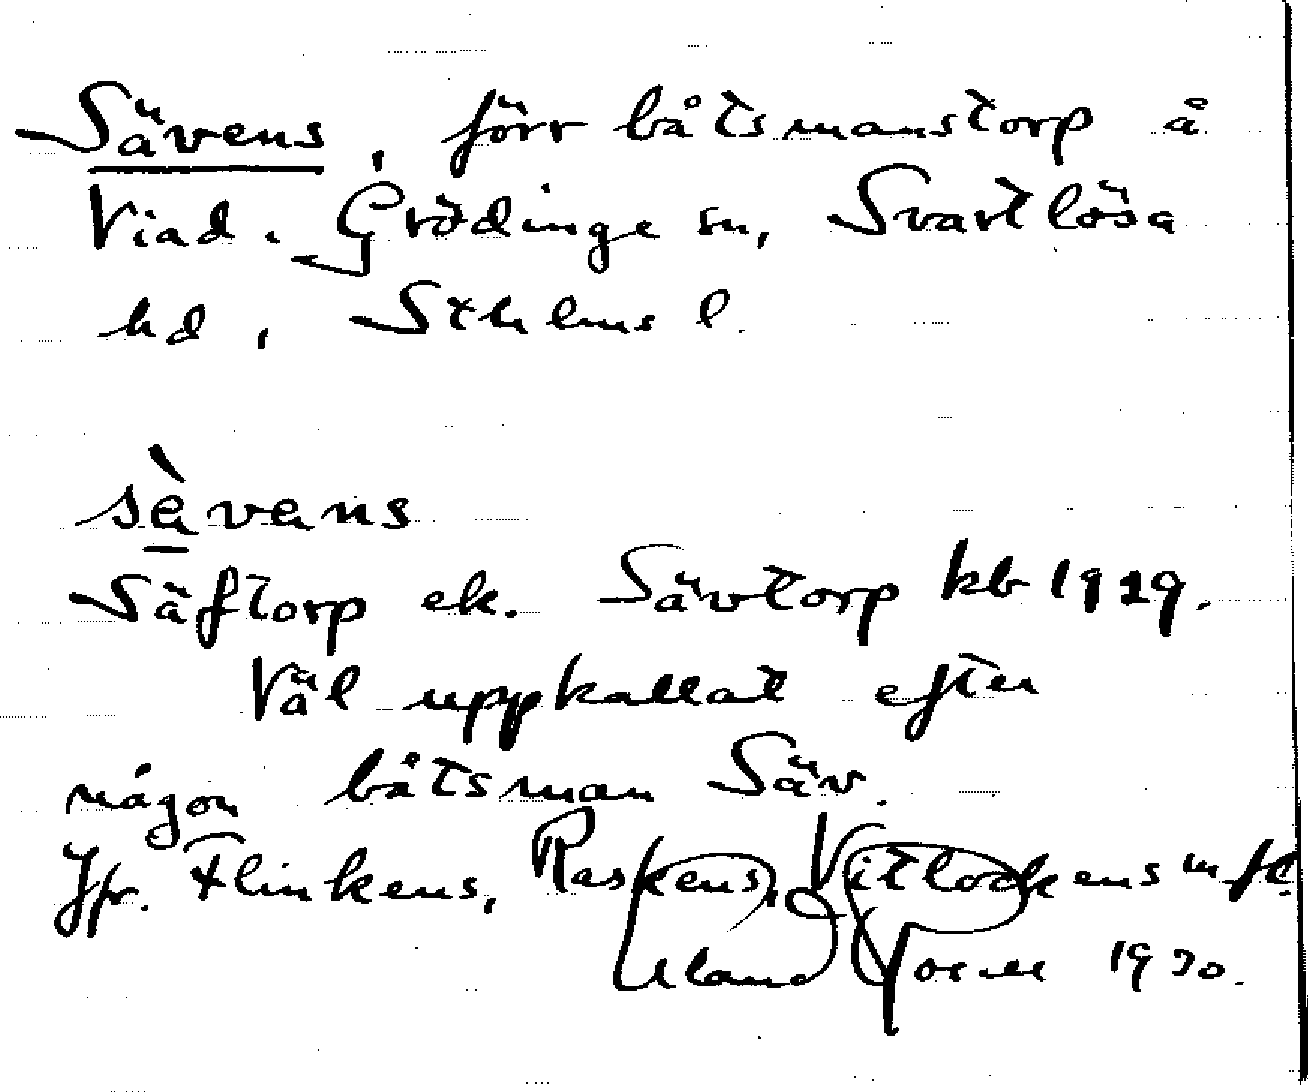 Sävens, förr båtsmanstorp å
Viad. Grödinge sn, Svartlösa
hd, Sthlms l.
sὲvens
Säftorp ek. Sävtorp kb 1929.
Väl uppkallat efter
någon båtsman Säv.
Jfr. Flinkens, Raskens, Vitlockens m fl.
1930.